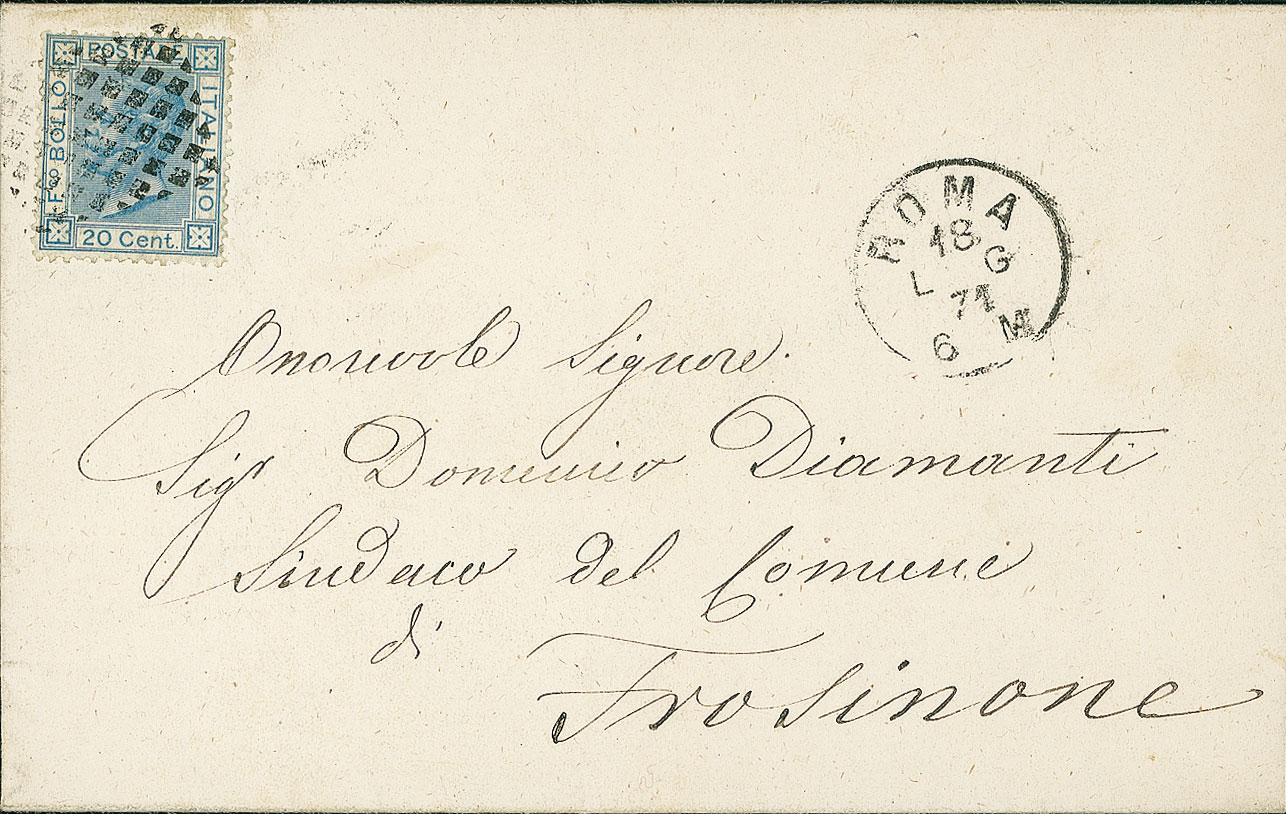 POSTALE
F.CO BOLLO
ITALIANO
20 Cent.
ROMA
18
LG
71
6 M
Onorevole Signore.
Sigr Domenico Diamanti
Sindaco del Comune
di
Frosinone